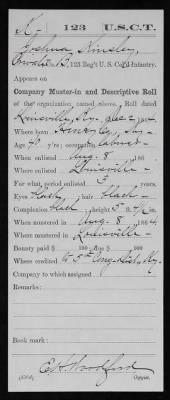 K. 123 U.S.C.T.
Joshua Kinsley
B, 123 Reg't U. S. Col'd Infantry.
Appears on
Company Muster-in and Descriptive Roll
of the organization named above. Roll dated
Louisville, Ky. 186
Where born Henry Co., Ky.
Age 40 y'rs; occupation Laborer
When enlisted Aug. 8 , 186
Where enlisted Louisville
For what period enlisted 3 years.
Eyes black ; hair black
Complexion black ; height ft. in.
When mustered in Aug. 8 , 1864.
Where mustered in Louisville
Bounty paid $ 100 ; due $ 100
Where credited 5th Cong. Dist., Ky.
Company to which assigned
Remarks:
Book mark:
E. H. Woodford
Copyist.